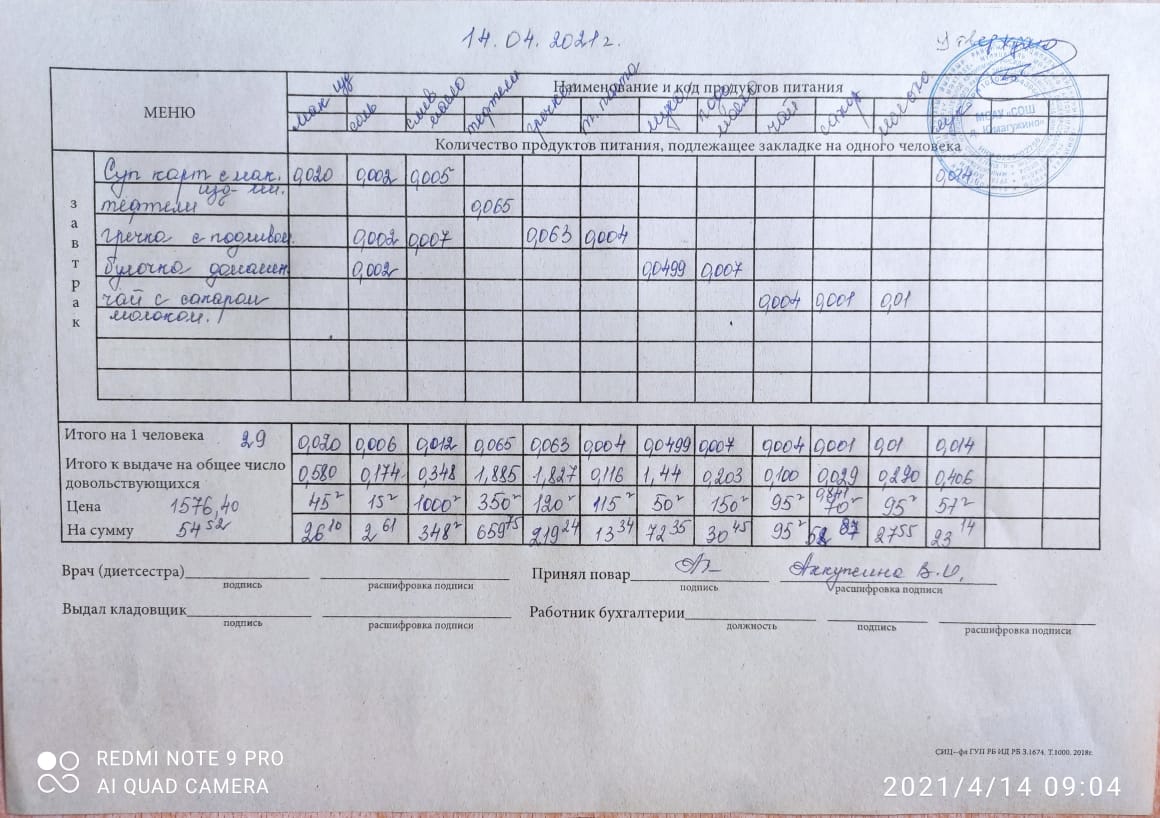 14.04.2021г.
Утверждаю
МЕНЮ
Наименование и код продуктов питания
мак из соль слив масло тефтели гречка т.паста мука подс масло чай сахар молоко лук
МОАУ «СОШ д. Юмагужино»
Количество продуктов питания, подлежащее закладке на одного человека
завтрак
Суп карт с мак. 0,020 0,002 0,005 0,014
изд-ми.
тефтели 0,065
гречка с подливой. 0,002 0,007 0,063 0,004
булочка домашн. 0,002 0,0499 0,007
чай с сахаром 0,004 0,001 0,01
молоком.
Итого на 1 человека 29 0,020 0,006 0,012 0,065 0,063 0,004 0,0499 0,007 0,004 0,001 0,01 0,014
Итого к выдаче на общее число довольствующихся 0,580 0,174 0,348 1,885 1,827 0,116 1,44 0,203 0,100 0,029 0,290 0,406
0,841
Цена 1576,40 45 15 1000 350 120 115 50 150 95 70 95 57
На сумму 54 52 26 10 2 61 348 659 75 219 24 13 34 72 35 30 45 95 58 87 27 55 23 14
Врач (диетсестра) Принял повар
подпись расшифровка подписи подпись расшифровка подписи
Выдал кладовщик Работник бухгалтерии
подпись расшифровка подписи должность подпись расшифровка подписи
СИЦ--фл ГУП РБ ИД РБ З.1674. Т.1000. 2018г.
REDMI NOTE 9 PRO
AI QUAD CAMERA
2021/4/14 09:04